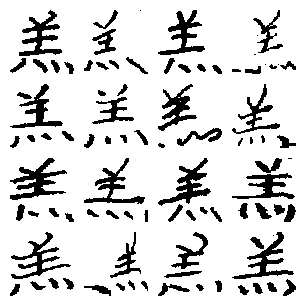 羔羔羔羔
羔羔羔羔
羔羔羔羔
羔羔羔羔